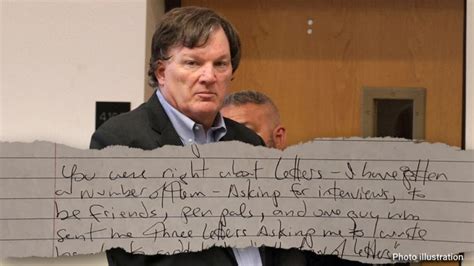 You were right about letters - I have gotten
a number of them - Asking for interviews, to
be friends, pen pals, and one guy who
sent me three letters Asking me to write
Photo illustration